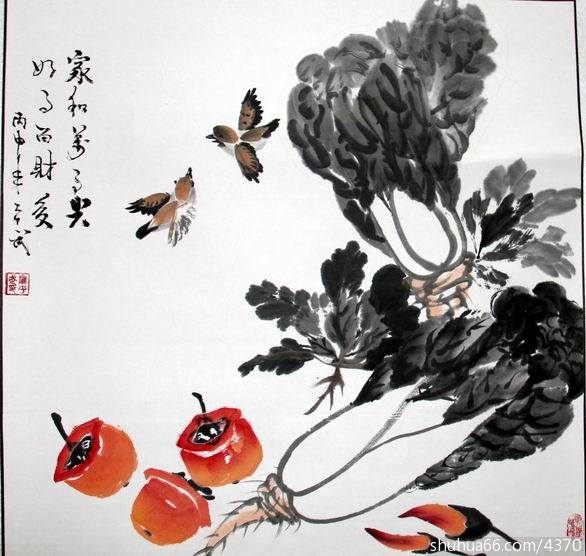 家和萬事興
好事百財多
丙申年
shuhua66.com/4370